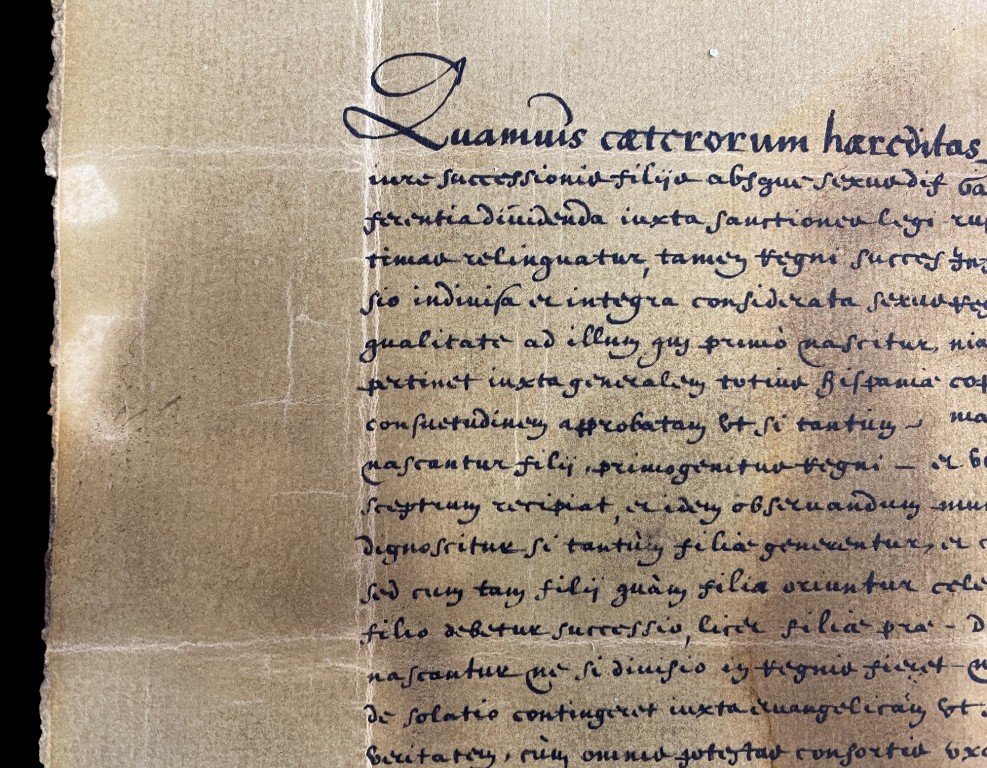 Quamuis cæterorum hæreditas
iure successionis filijs absque sexus dif
ferentia diuidenda iuxta sanctiones legi
timas relinquatur, tamen Regni succes
sio indiuisa et integra considerata sexus
qualitate ad illum qui primò nascitur,
pertinet iuxta generalem totius Hispaniæ
consuetudinem approbatam vt si tantum
nascantur filij, primogenitus Regni — et
sceptrum recipiat, et idem obseruandum
dignoscitur si tantùm filiæ generentur, et
sed cum tam filij quàm filiæ oriuntur
filio debetur successio, licet filiæ præ -
nascantur ne si diuisio in Regnis fieret
de solatio contingeret iuxta euangelicam vt
veritatem, cùm omnis potestas consortis